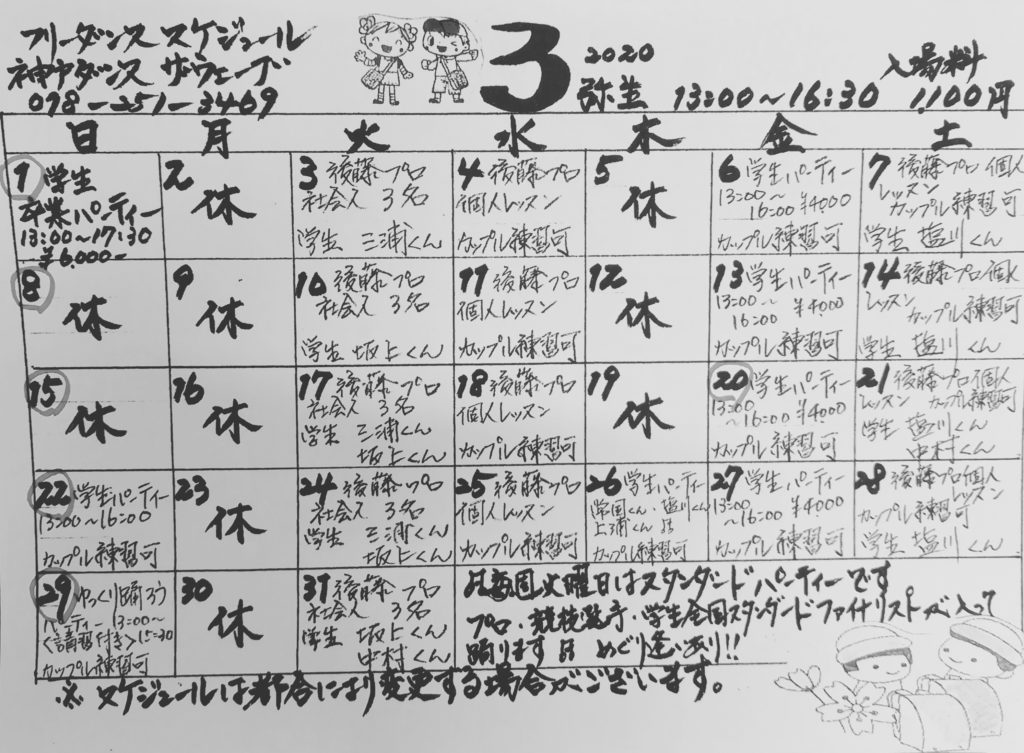 フリーダンス スケジュール
神戸ダンス ザウェーブ
078-251-3469
3
2020
弥生
13:00～16:30
入場料
1,100円
日 月 火 水 木 金 土
1 学生
卒業パーティー
13:00～17:30
¥6,000-
2
休
3 後藤プロ
社会人 3名
学生 三浦くん
4 後藤プロ
個人レッスン
カップル練習可
5
休
6 学生パーティー
13:00～
16:00 ¥4000
カップル練習可
7 後藤プロ個人
レッスン
カップル練習可
学生 塩川くん
8
休
9
休
10 後藤プロ
社会人 3名
学生 坂上くん
11 後藤プロ
個人レッスン
カップル練習可
12
休
13 学生パーティー
13:00～
16:00 ¥4000
カップル練習可
14 後藤プロ個人
レッスン
カップル練習可
学生 塩川くん
15
休
16
休
17 後藤プロ
社会人 3名
学生 三浦くん
坂上くん
18 後藤プロ
個人レッスン
カップル練習可
19
休
20 学生パーティー
13:00
～16:00 ¥4000
カップル練習可
21 後藤プロ個人
レッスン カップル練習可
学生 塩川くん
中村くん
22 学生パーティー
13:00～16:00
カップル練習可
23
休
24 後藤プロ
社会人 3名
学生 三浦くん
坂上くん
25 後藤プロ
個人レッスン
カップル練習可
26 学生パーティー
くん・塩川くん
くん
カップル練習可
27 学生パーティー
13:00
～16:00 ¥4000
カップル練習可
28 後藤プロ個人
レッスン
カップル練習可
学生 塩川くん
29 ゆっくり踊ろう
パーティー 13:00～
<講習付き> 15:30
カップル練習可
30
休
31 後藤プロ
社会人 3名
学生 坂上くん
中村くん
毎週火曜日はスタンダードパーティーです
プロ・競技選手・学生全国スタンダードファイナリストが入って
踊ります めぐり逢いあり!!
※ スケジュールは都合により変更する場合がございます。